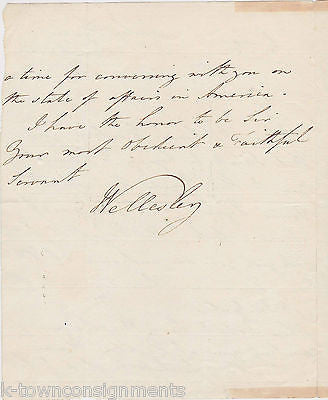 a time for conversing with you on
the state of affairs in America.
I have the honor to be Sir.
Your most Obedient & Faithful
Servant
Wellesley
k-townconsignments